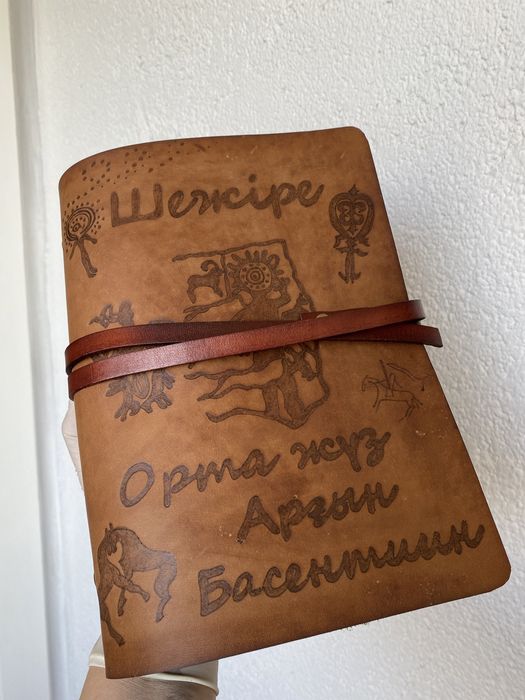 Шежіре
Орта жүз
Арғын
Басентиин